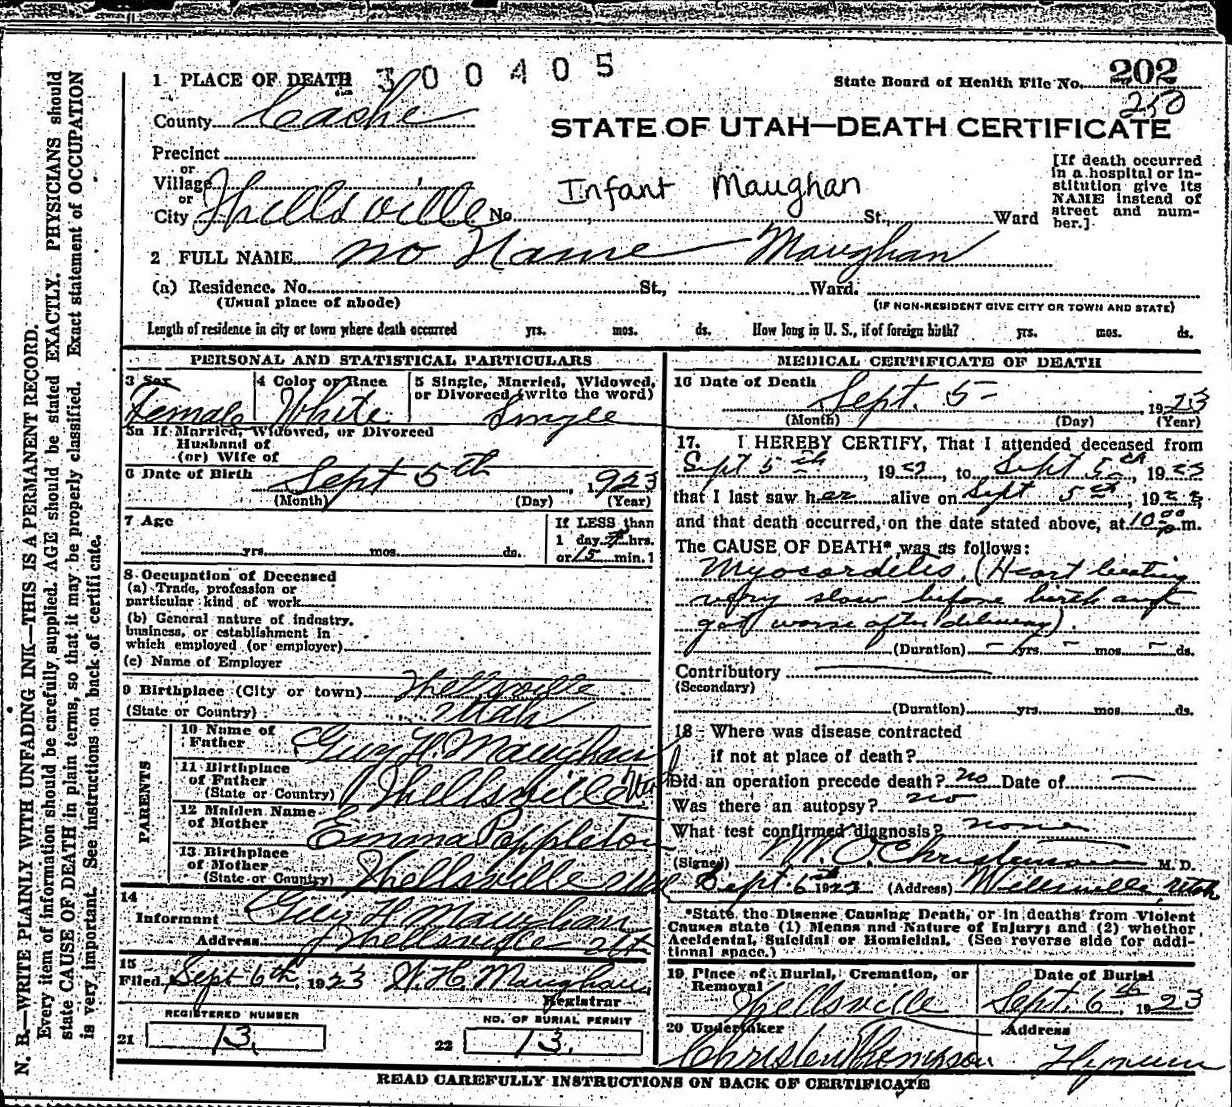 300405
1 PLACE OF DEATH
State Board of Health File No. 202
250
County Cache
STATE OF UTAH—DEATH CERTIFICATE
Precinct
or
Village
or
City Wellsville No. St., Ward
Infant Maughan
[If death occurred
in a hospital or in-
stitution give its
NAME instead of
street and num-
ber.]
2 FULL NAME no Name Maughan
(a) Residence. No. St., Ward.
(Usual place of abode)
(IF NON-RESIDENT GIVE CITY OR TOWN AND STATE)
Length of residence in city or town where death occurred yrs. mos. ds. How long in U. S., if of foreign birth? yrs. mos. ds.
PERSONAL AND STATISTICAL PARTICULARS
3 Sex Female
4 Color or Race White
5 Single, Married, Widowed,
or Divorced (write the word)
Single
5a If Married, Widowed, or Divorced
Husband of
(or) Wife of
6 Date of Birth Sept 5th, 1923
(Month) (Day) (Year)
7 Age
yrs. mos. ds.
If LESS than
1 day hrs.
or 15 min.
8 Occupation of Deceased
(a) Trade, profession or
particular kind of work
(b) General nature of industry,
business, or establishment in
which employed (or employer)
(c) Name of Employer
9 Birthplace (City or town) Wellsville
(State or Country) Utah
PARENTS
10 Name of
Father Guy H Maughan
11 Birthplace
of Father
(State or Country) Wellsville Utah
12 Maiden Name
of Mother Emma Poppleton
13 Birthplace
of Mother
(State or Country) Wellsville Utah
14
Informant Guy H Maughan
Address Wellsville Ut
15
Filed Sept 6th, 1923 W. H. Maughan
Registrar
REGISTERED NUMBER
21 13.
NO. OF BURIAL PERMIT
22 13.
MEDICAL CERTIFICATE OF DEATH
16 Date of Death
Sept. 5-, 1923
(Month) (Day) (Year)
17. I HEREBY CERTIFY, That I attended deceased from
Sept 5th 1923, to Sept 5th, 1923
that I last saw her alive on Sept 5th, 1923,
and that death occurred, on the date stated above, at 10 00 p m.
The CAUSE OF DEATH* was as follows:
Myocarditis. (Heart beating
very slow before birth and
got worse after delivery).
(Duration) - yrs. - mos. - ds.
Contributory
(Secondary)
(Duration) yrs. mos. ds.
18 Where was disease contracted
if not at place of death?
Did an operation precede death? no Date of —
Was there an autopsy? no
What test confirmed diagnosis? none
(Signed) M. O. Christensen M. D.
Sept 6th 1923 (Address) Wellsville, Utah
*State the Disease Causing Death, or in deaths from Violent
Causes state (1) Means and Nature of Injury; and (2) whether
Accidental, Suicidal or Homicidal. (See reverse side for addi-
tional space.)
19 Place of Burial, Cremation, or
Removal
Wellsville
Date of Burial
Sept. 6th, 1923
20 Undertaker
Christen Thompson
Address
Hyrum
READ CAREFULLY INSTRUCTIONS ON BACK OF CERTIFICATE
N. B.—WRITE PLAINLY WITH UNFADING INK—THIS IS A PERMANENT RECORD.
Every item of information should be carefully supplied. AGE should be stated EXACTLY. PHYSICIANS should
state CAUSE OF DEATH in plain terms, so that it may be properly classified. Exact statement of OCCUPATION
is very important. See instructions on back of certificate.